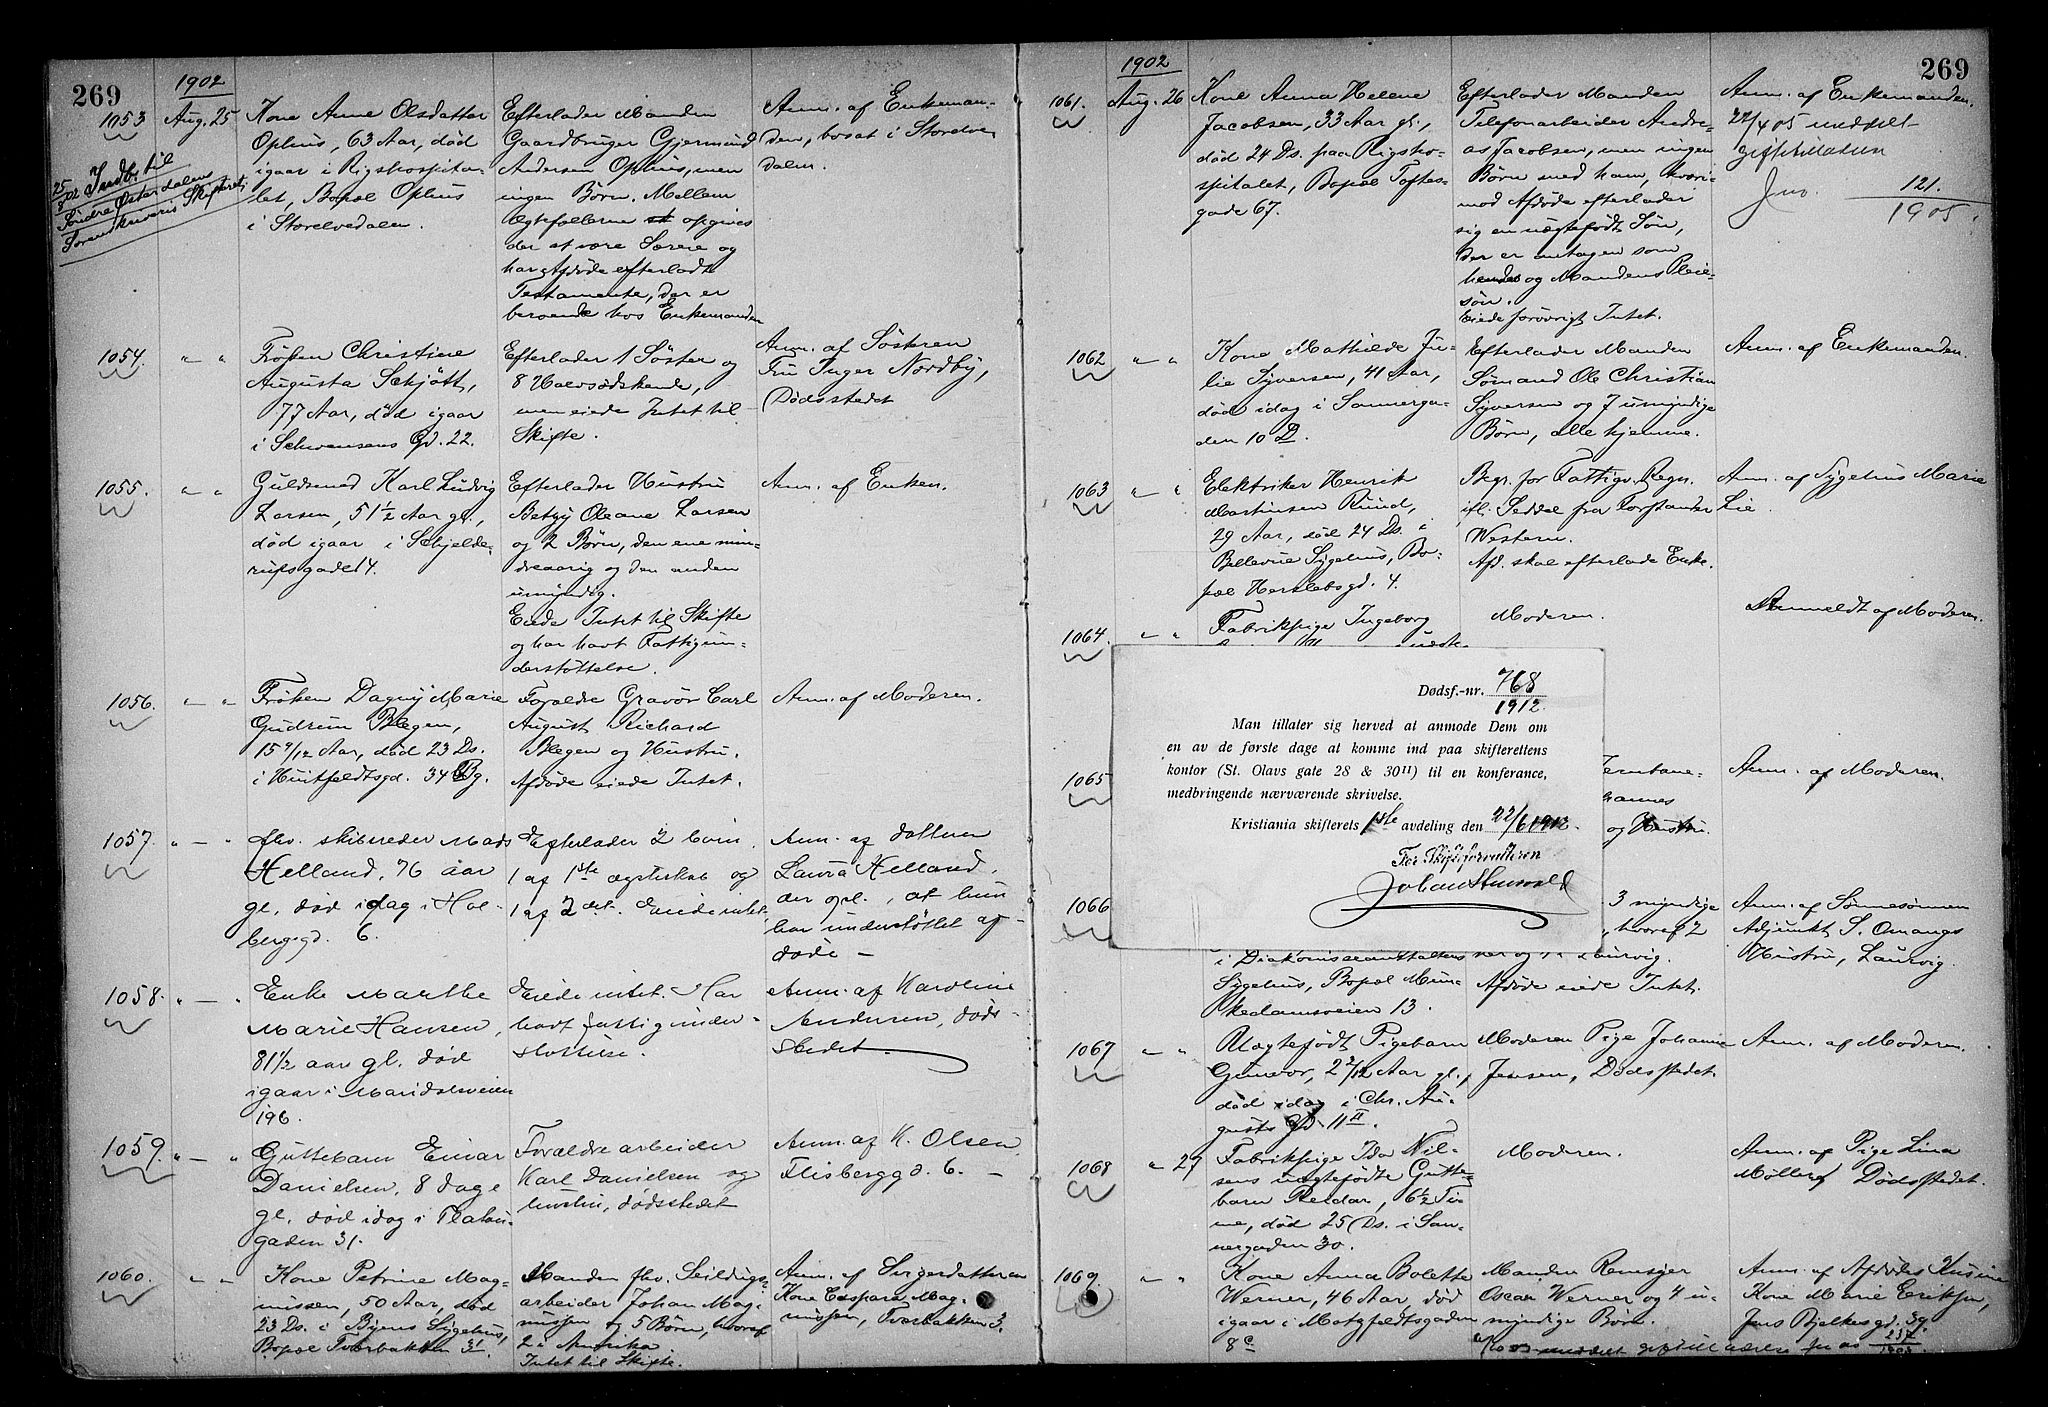 269
1902
1053
Aug. 25
Kone Anne Olsdatter
Ophus, 63 Aar, død
igaar i Rigshospita-
let, Bopæl Ophus
i Storelvedalen.
Efterlader Manden
Gaardbruger Gjermund
Andersen Ophus, men
ingen Børn. Mellem
Ægtefællerne opgives
der at være Særeie og
har Afdøde efterladt
Testamente, der er
beroende hos Enkemanden
Anm. af Enkeman-
den, bosat i Storelve
dalen.
25/8 02 Indb. til
Søndre Østerdalens
Sorenskriveris Skifteret.
1054.
" "
Frøken Christine
Augusta Schjøtt,
77 Aar, død igaar
i Schwensens Gd. 22.
Efterlader 1 Søster og
8 Halvsødskende,
men eiede Intet til
Skifte.
Anm. af Søsteren
Fru Inger Nordby,
Dødsstedet
1055.
" "
Guldsmed Karl Ludvig
Larsen, 51 1/2 Aar gl.,
død igaar i Schjelde-
rupsgade 14.
Efterlader Hustru
Betzy Oleane Larsen
og 2 Børn, den ene min-
dreaarig og den anden
umyndig.
Eiede Intet til Skifte
og har havt Fattigun-
derstøttelse.
Anm. af Enken.
1056.
" "
Frøken Dagny Marie
Gudrun Blegen,
15 9/12 Aar, død 23 Ds.
i Huitfeldtsgd. 34 Bg.
Forældre Gravør Carl
August Richard
Blegen og Hustru.
Afdøde eiede Intet.
Anm. af Moderen.
1057.
" — "
fhv. skibsreder Mads
Helland, 76 aar
gl., død idag i Hol-
bergsgd. 6.
Efterlader 2 børn,
1 af 1ste ægteskab og
1 af 2det. Eiede intet.
Anm. af datteren
Laura Helland,
der opl., at hun
har understøttet af-
døde —
1058.
" — "
Enke Marthe
Marie Hansen,
81 1/2 aar gl., død
igaar i Maridalsveien
196.
Eiede intet. Har
havt fattigunder-
støttelse.
Anm. af Karoline
Andersen, døds-
stedet.
1059.
" — "
Guttebarn Einar
Danielsen, 8 dage
gl., død idag i Platou-
gaden 31.
Forældre arbeider
Karl Danielsen og
hustru, dødsstedet
Anm. af K. Olsen,
Flisberggd. 6. —
1060.
" "
Kone Petrine Mag-
nussen, 50 Aar, død
23 Ds. i Byens Sygehus,
Bopæl Tverbakken 3.
Manden fhv. Seildugs-
arbeider Johan Mag-
nussen og 5 Børn, hvoraf
2 i Amerika.
Intet til Skifte.
Anm. af Svigerdatteren
Kone Caspara Mag-
nussen, Tverbakken 3.
269
1902
1061.
Aug. 26
Kone Anna Helene
Jacobsen, 33 Aar gl.,
død 24 Ds. paa Rigsho-
spitalet, Bopæl Toftes-
gade 67.
Efterlader Manden
Telefonarbeider Andre-
as Jacobsen, men ingen
Børn med ham, hvori-
mod Afdøde efterlader
sig en uægtefødt Søn,
der er antagen som
hendes og Mandens Pleie-
søn.
Eiede forøvrigt Intet.
Anm. af Enkemanden.
22/4 05 meddelt
giftetilladelse
Jno. 121.
1905.
1062
" "
Kone Mathilde Ju-
lie Syversen, 41 Aar,
død idag i Sannerga-
den 10 D.
Efterlader Manden
Sømand Ole Christian
Syversen og 7 umyndige
Børn, alle hjemme.
Anm. af Enkemanden.
1063
" "
Elektriker Henrik
Martinsen Ruud,
29 Aar, død 24 Ds. i
Bellevue Sygehus, Bo-
pæl Herslebsgd. 4.
Begr. for Fattigv. Regn.
ifl. Seddel fra Forstander
Western.
Afd. skal efterlade Enke.
Anm. af Sygehus Marie
Lie.
1064
" "
Fabrikpige Ingeborg
Moderen.
Anmeldt af Moderen.
Dødsf.-nr. 768
1912.
Man tillater sig herved at anmode Dem om
en av de første dage at komme ind paa skifterettens
kontor (St. Olavs gate 28 & 30 II) til en konferance,
medbringende nærværende skrivelse.
Kristiania skifterets 1ste avdeling den 22/6 1912.
For Skifteforvalteren
1065
Jernbane-
hannes
og Hustru.
Anm. af Moderen.
1066
3 myndige
, hvoraf 2
i Diakonisseanstaltens
Sygehus, Bopæl Mun-
kedamsveien 13.
Laurvig.
Afdøde eiede Intet.
Anm. af Sønnesønnen
Adjunkt S. Omangs
Hustru, Laurvig.
1067
" "
Uægtefødt Pigebarn
Gunvor, 2 2/12 Aar gl.,
død idag i Chr. Au-
gusts Gd. 11 II.
Moderen Pige Johanne
Jensen, Dødsstedet.
Anm. af Moderen.
1068
" 27
Fabrikpige Ida Nil-
sens uægtefødte Gutte-
barn Reidar, 6 1/2 Ti-
me, død 25 Ds. i San-
nergaden 30.
Moderen.
Anm. af Pige Lina
Møller, Dødsstedet.
1069.
" "
Kone Anna Bolette
Werner, 46 Aar, død
igaar i Motzfeldtsgaden
8 c
Manden Rensger
Oscar Werner og 4 u-
myndige Børn.
Anm. af Afdødes Kusine
Kone Marie Eriksen,
Jens Bjelkesgd. 39